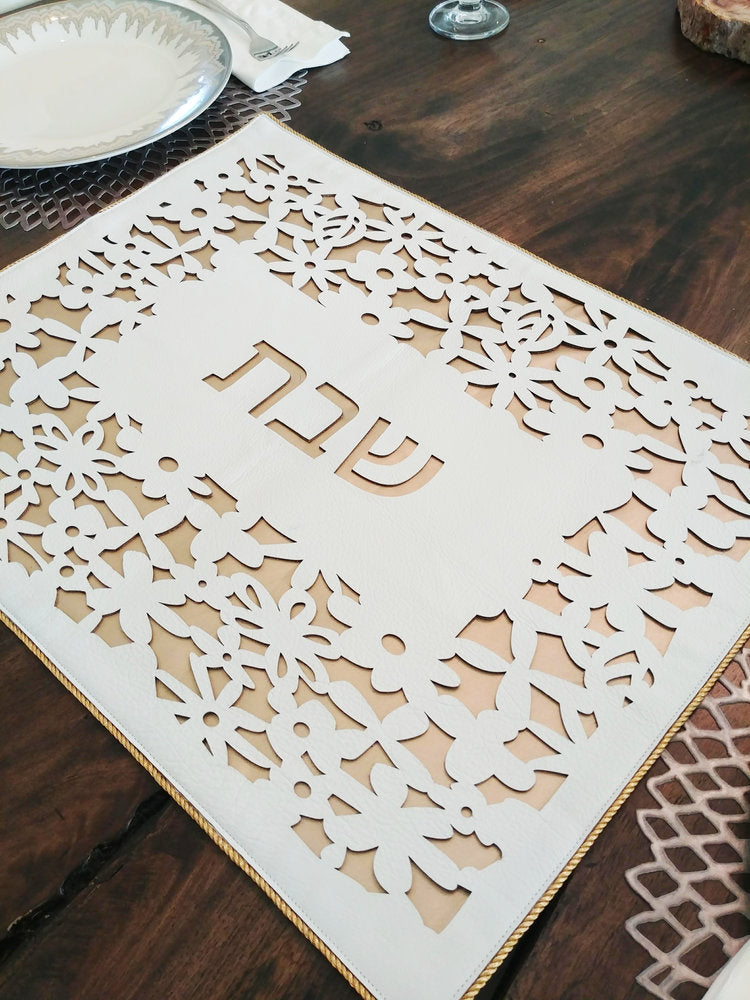 שבת